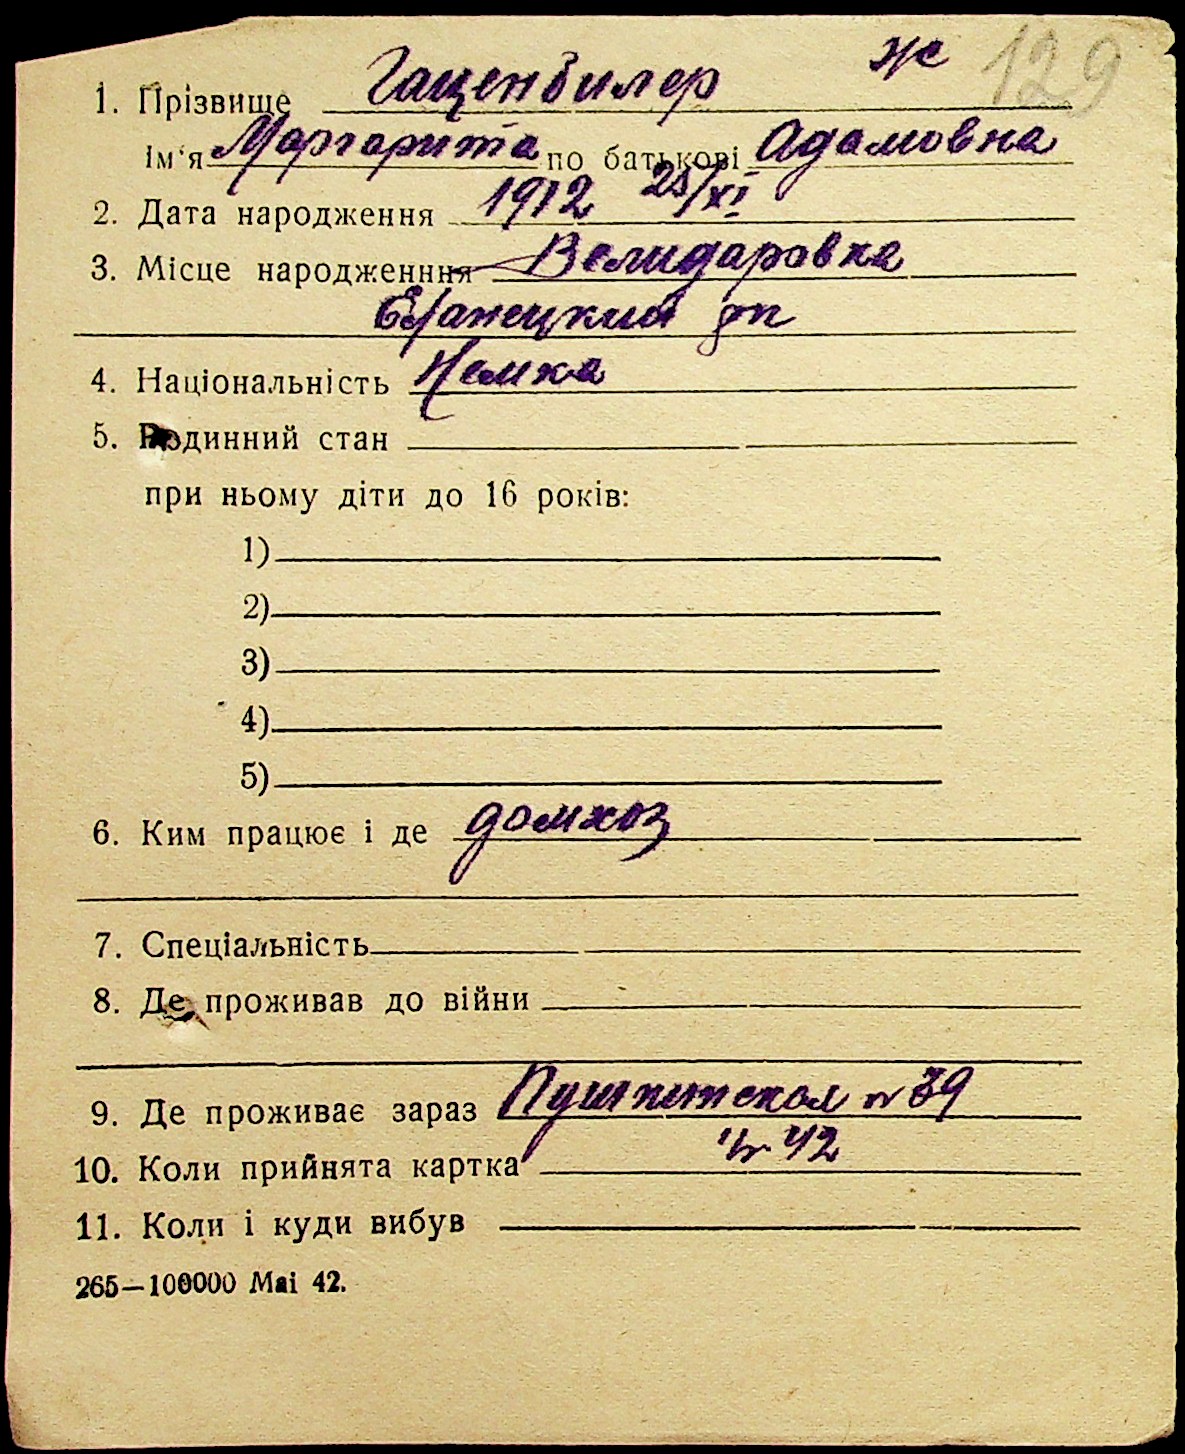 ж 129
1. Прізвище Гаценбилер
Ім‘я Маргарита по батькові Адамовна
2. Дата народження 1912 25/XI
3. Місце народженння Велидаровка
Еланецкий рп
4. Національність Немка
5. Родинний стан
при ньому діти до 16 років:
1)
2)
3)
4)
5)
6. Ким працює і де домхоз
7. Спеціальність
8. Де проживав до війни
9. Де проживає зараз Пушкинская № 39
10. Коли прийнята картка 42
11. Коли і куди вибув
265—100000 Маі 42.